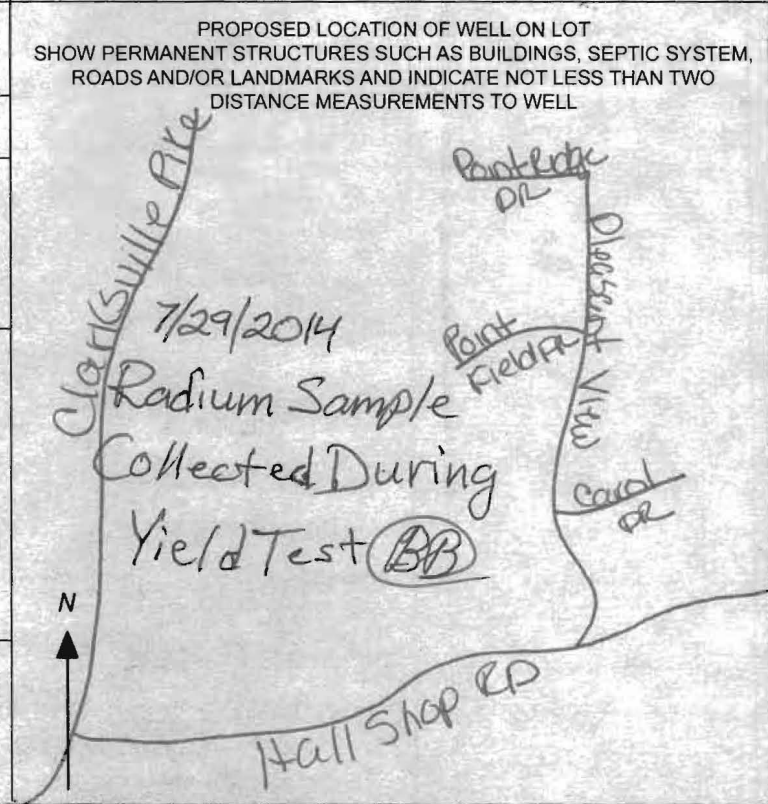 PROPOSED LOCATION OF WELL ON LOT
SHOW PERMANENT STRUCTURES SUCH AS BUILDINGS, SEPTIC SYSTEM,
ROADS AND/OR LANDMARKS AND INDICATE NOT LESS THAN TWO
DISTANCE MEASUREMENTS TO WELL
Clarksville Pike
Point Ridge
DR
Pleasent View
7/29/2014
Radium Sample
Collected During
Yield Test BB
Point
Field DR
Carol
DR
N
Hall Shop RD